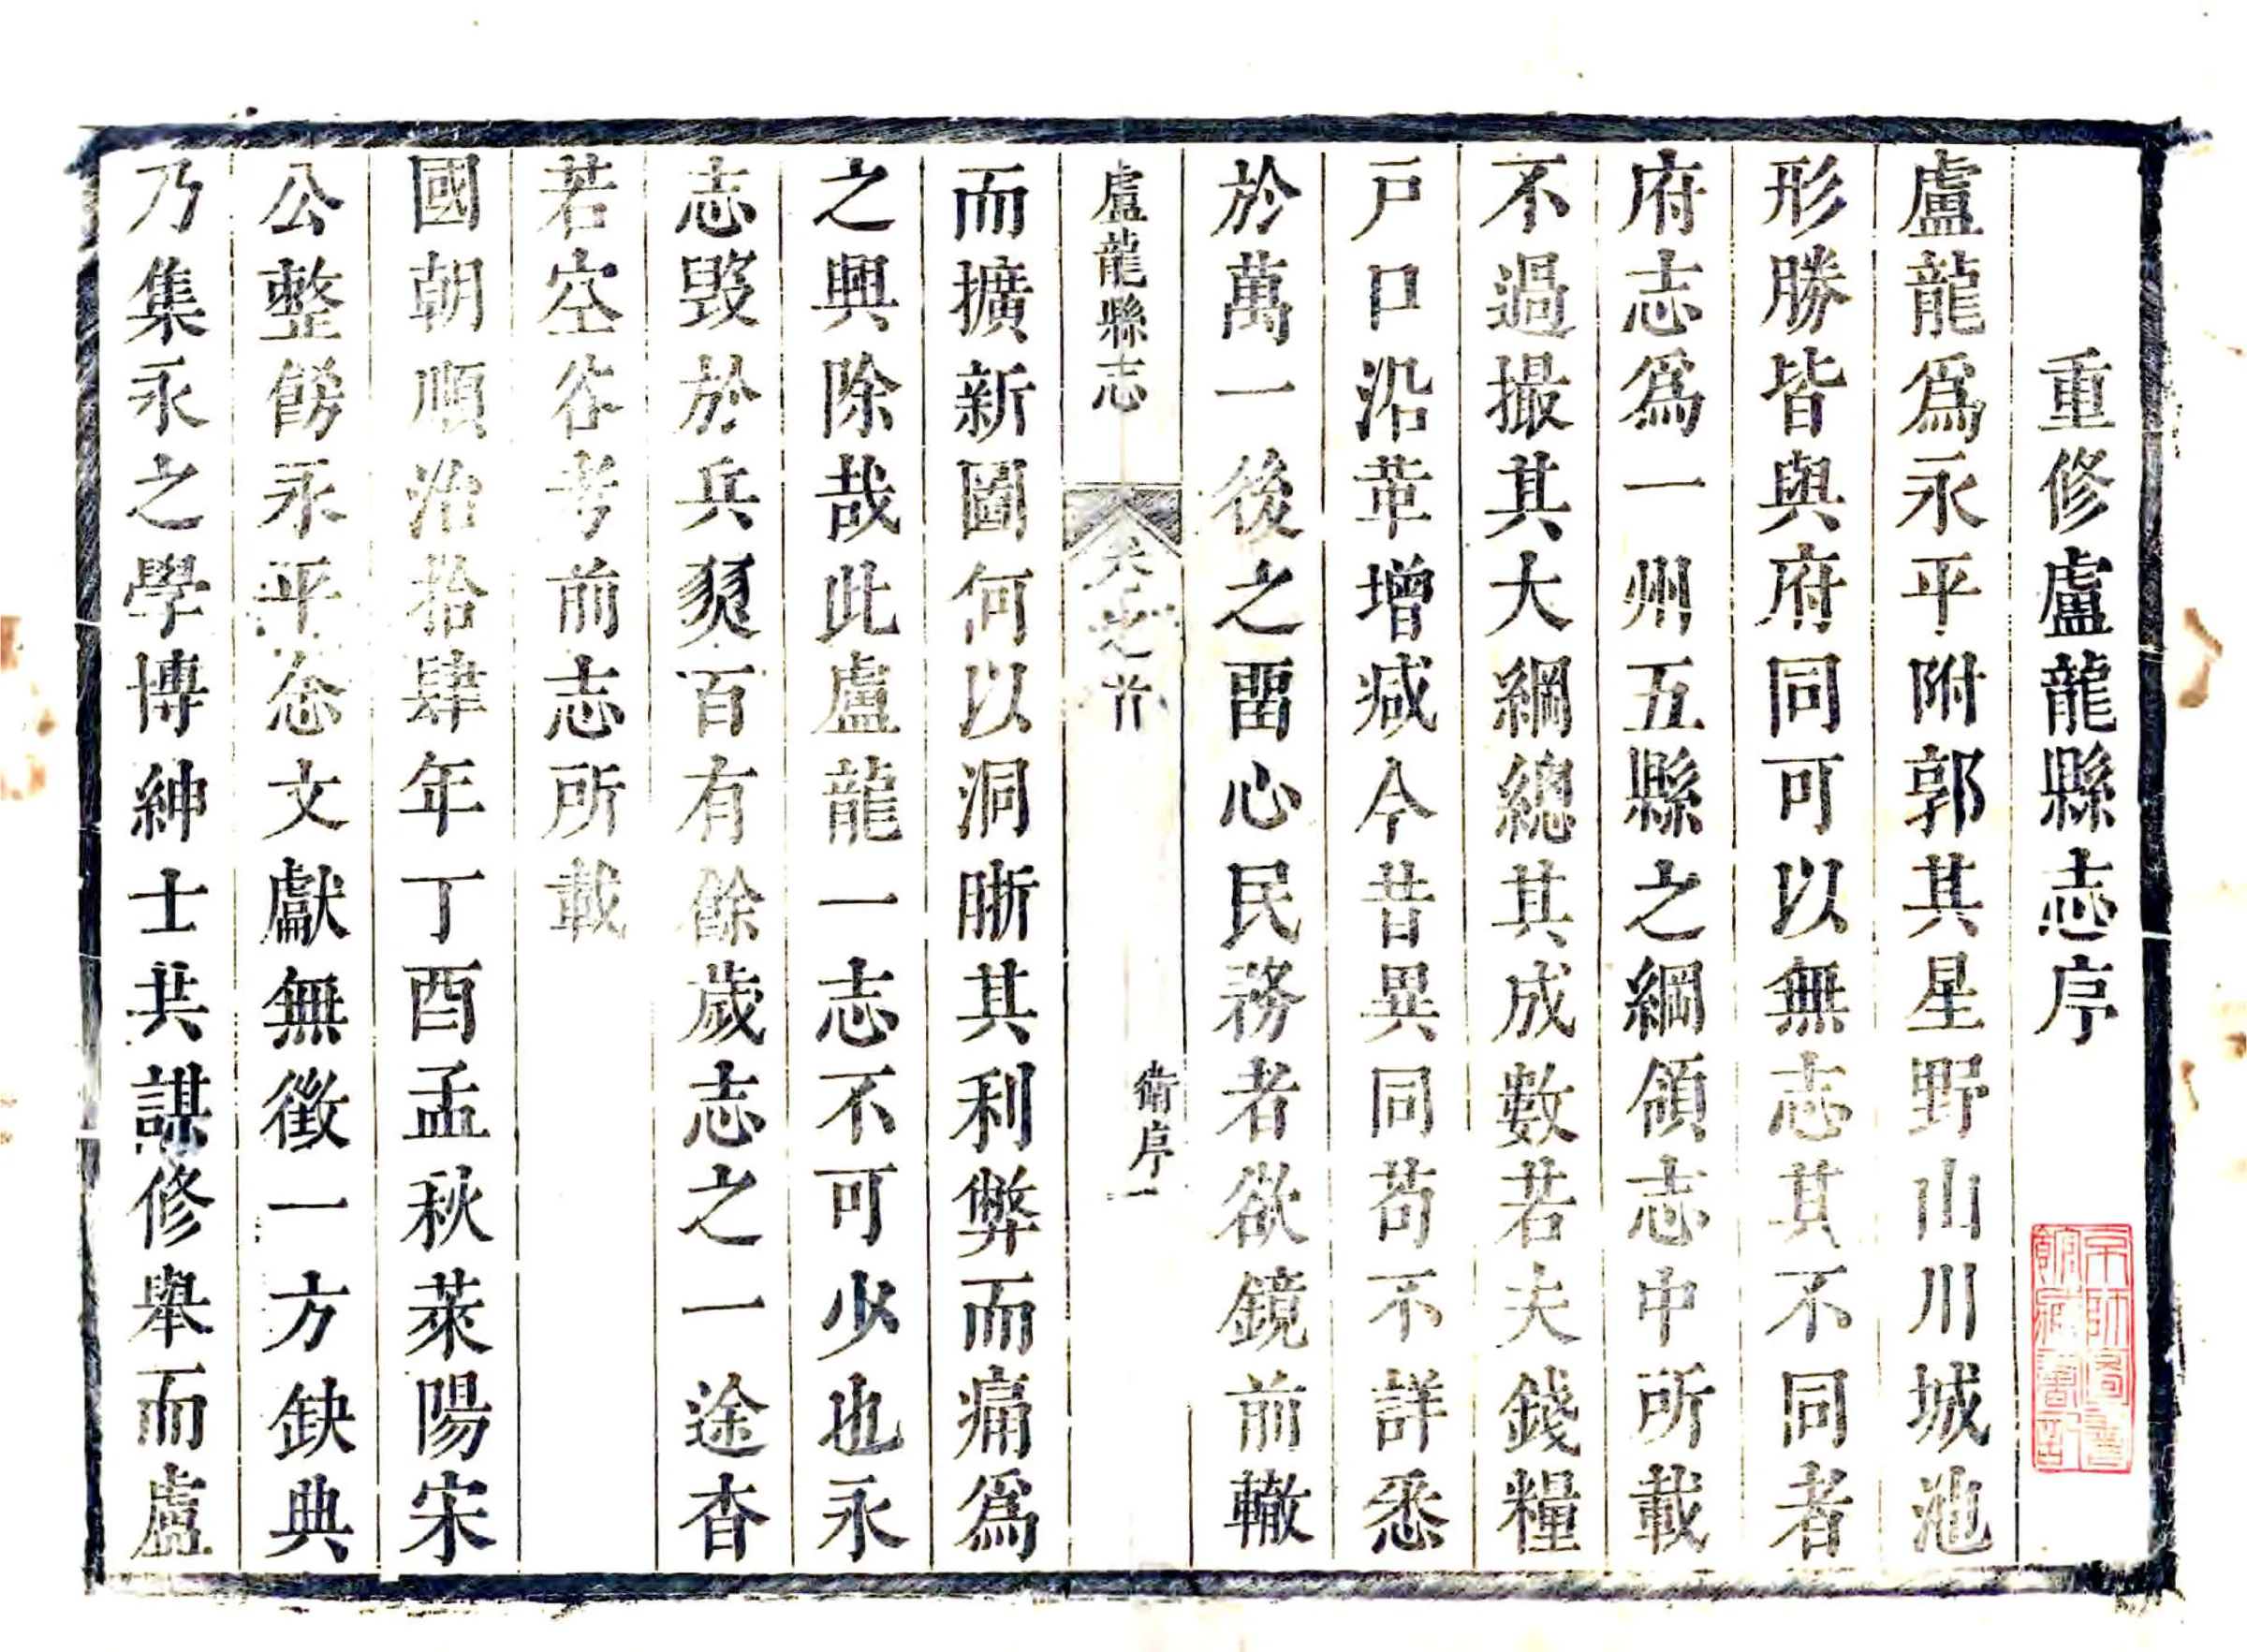 重修盧龍縣志序
盧龍爲永平附郭其星野山川城池
形勝皆與府同可以無志其不同者
府志爲一州五縣之綱領志中所載
不過撮其大綱總其成數若夫錢糧
戶口沿革增減今昔異同苟不詳悉
於萬一後之畱心民務者欲鏡前轍
盧龍縣志
卷之首
衛序一
而擴新圖何以洞晰其利弊而痛爲
之興除哉此盧龍一志不可少也永
志毀於兵燹百有餘歲志之一途杳
若空谷考前志所載
國朝順治拾肆年丁酉孟秋萊陽宋
公整飭永平念文獻無徵一方缺典
乃集永之學博紳士共謀修舉而盧